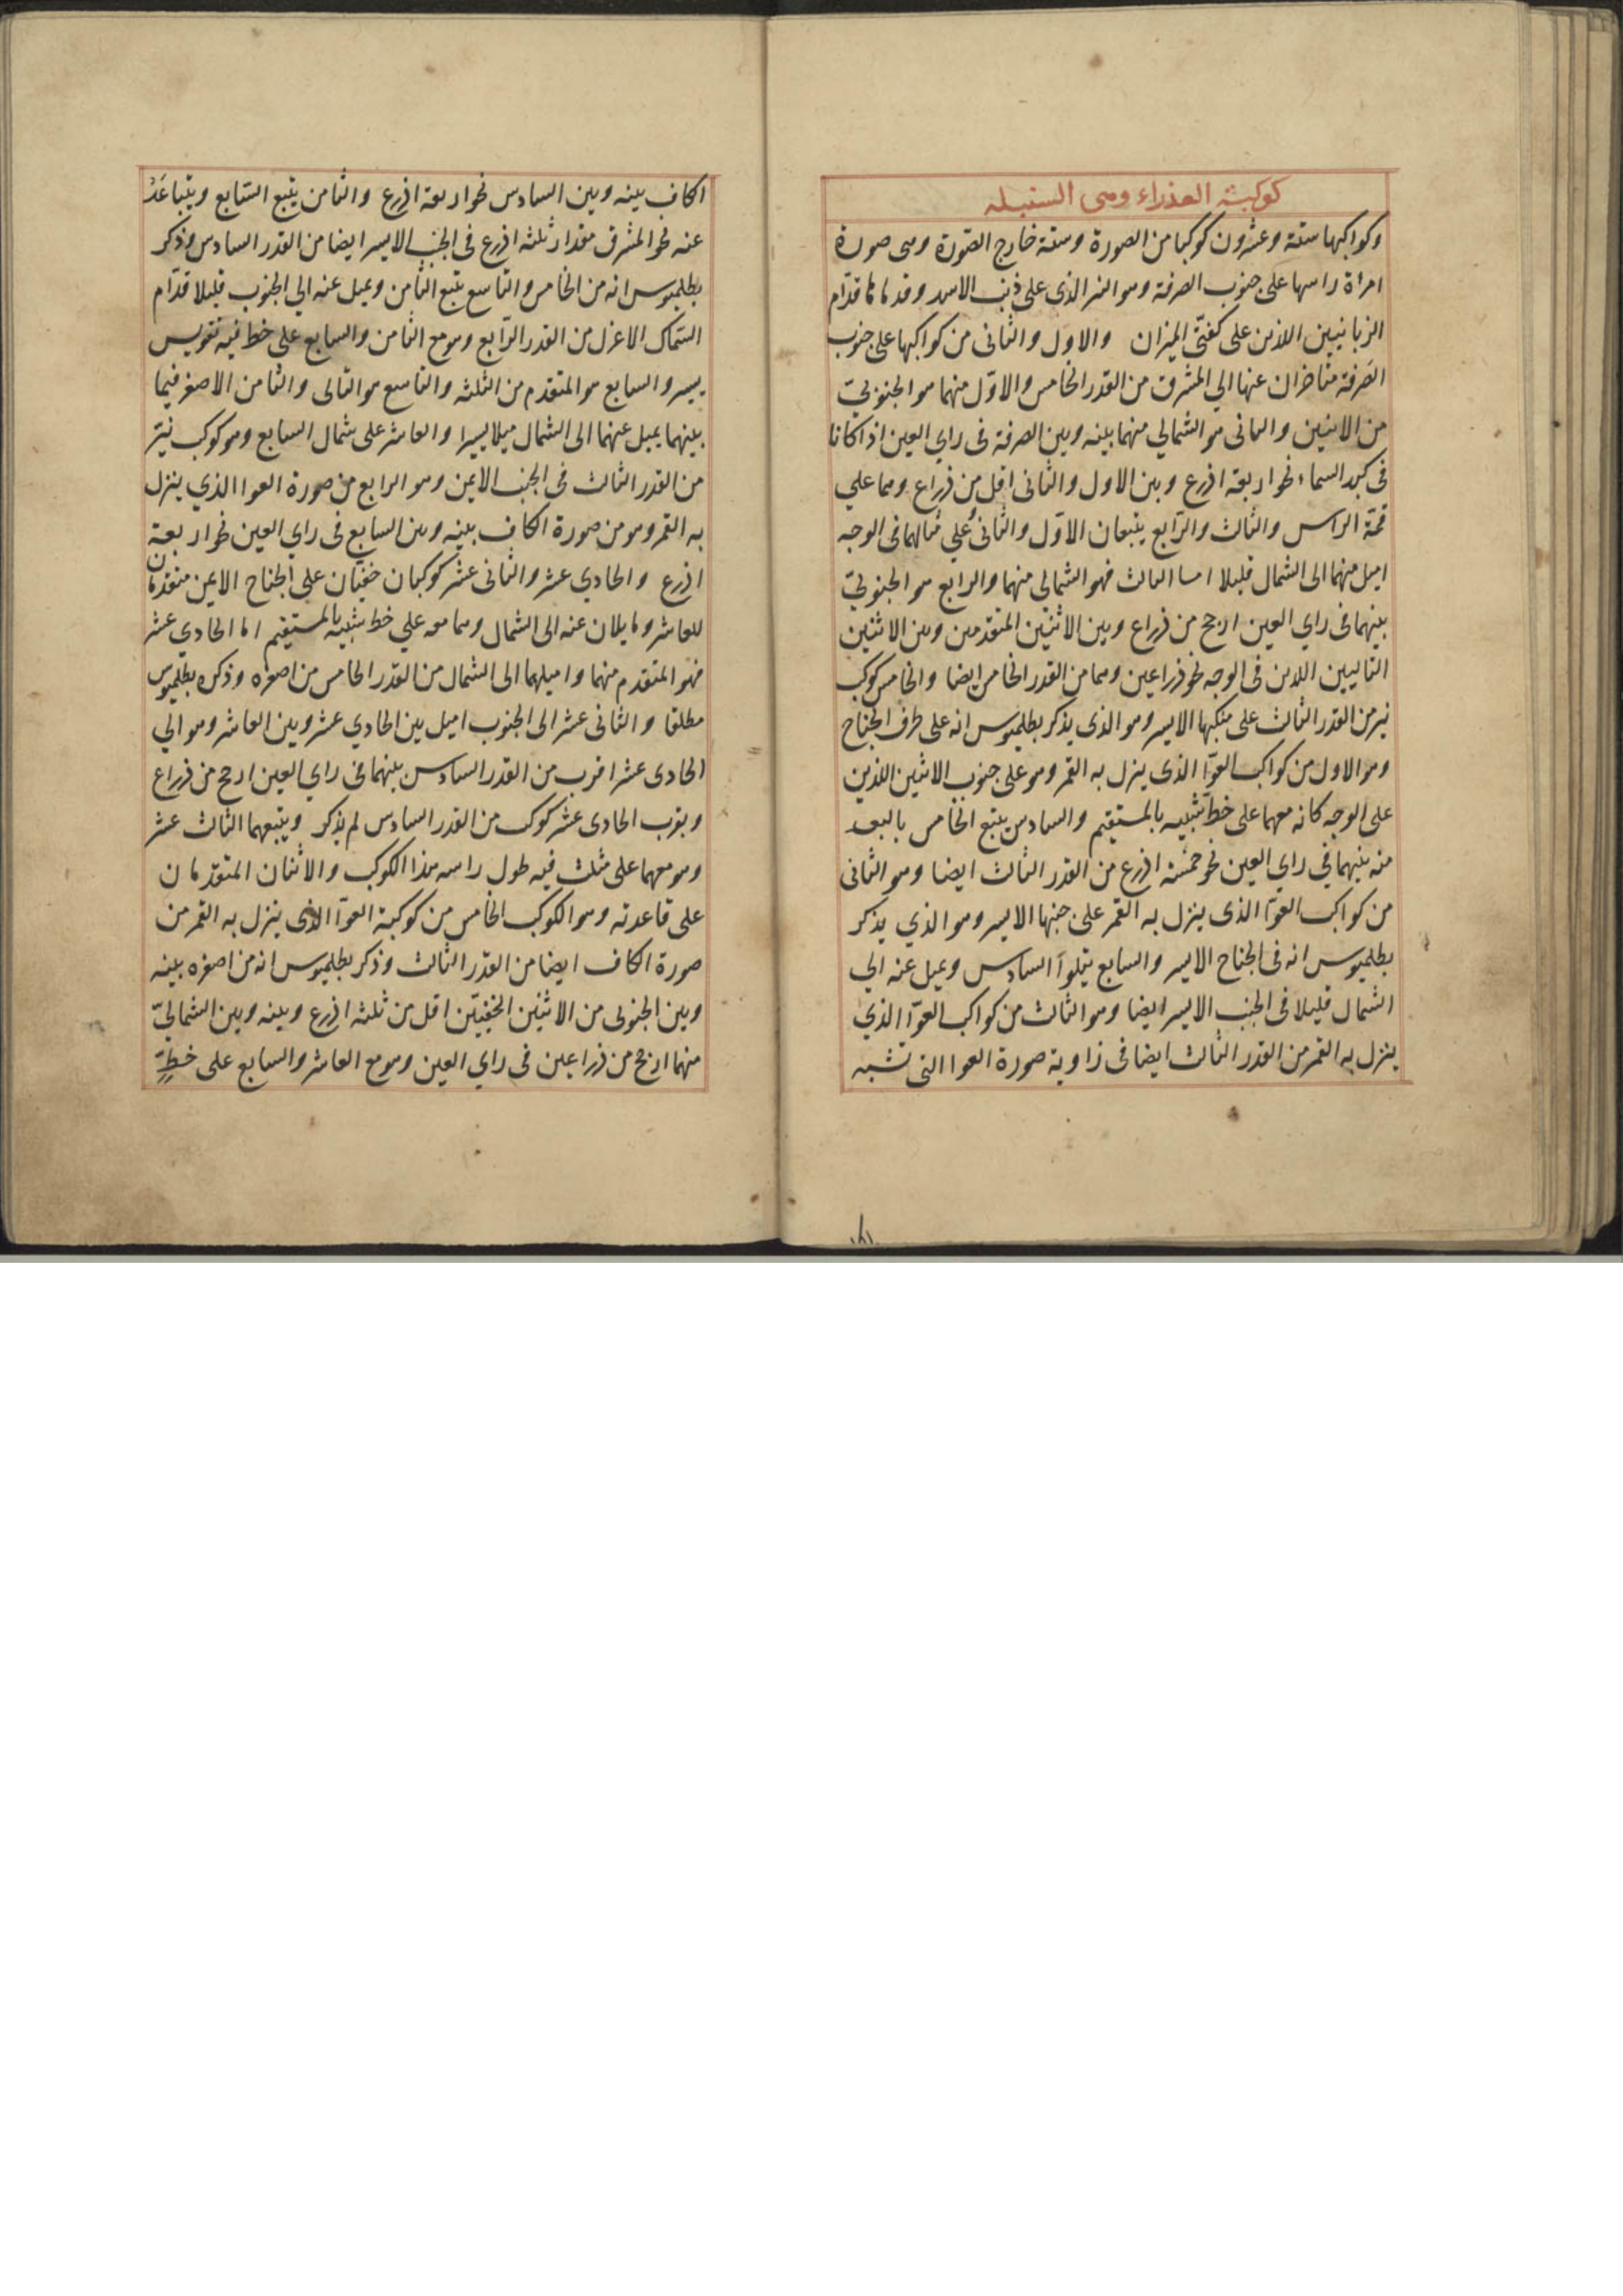 كوكبة العذراء وهى السنبله
وكواكبها ستة وعشرون كوكبا من الصورة وستة خارج الصورة وهى صورة
امرأة راسها على جنوب الصرفة وهو النير الذى على ذنب الاسد وقدماها قدّام
الزبانيين اللذين على كفتّى الميزان والاول والثانى من كواكبها على جنوب
الصَرفة متاخران عنها الي المشرق من القدر الخامس والاوّل منهما هو الجنوبيّ
من الاثنين والثانى هو الشمالي منهما بينه وبين الصرفة فى راي العين اذا كانا
فى كبد السماء نحو اربعة اذرع وبين الاول والثانى اقل من ذراع وهما علي
قمّة الراس والثالث والرّابع يتبعان الاوّل والثانى علي مثالهما فى الوجه
اميل منهما الى الشمال قليلا اما الثالث فهو الشمالى منهما والرابع هو الجنوبيّ
بينهما فى راي العين ارجح من ذراع وبين الاثنين المتقدمين وبين الاثنين
التاليين اللذين فى الوجه نحو ذراعين وهما من القدر الخامس ايضا والخامس كوكب
نير من القدر الثالث على منكبها الايسر وهو الذى يذكر بطلميوس انه على طرف الجناح
وهو الاول من كواكب العوّا الذى ينزل به القمر وهو على جنوب الاثنين اللذين
على الوجه كانه معهما على خطّ شبيه بالمستقيم والسادس يتبع الخامس بالبعد
منه بينهما في راي العين نحو خمسة اذرع من القدر الثالث ايضا وهو الثانى
من كواكب العوّا الذى ينزل به القمر على جنبها الايسر وهو الذي يذكر
بطلميوس انه فى الجناح الايسر والسابع يتلوا السادس ويميل عنه الي
الشمال قليلا فى الجنب الايسر ايضا وهو الثالث من كواكب العوّا الذي
ينزل به القمر من القدر الثالث ايضا فى زاوية صورة العوا التى تشبه
الكاف بينه وبين السادس نحو اربعة اذرع والثامن يتبع السّابع ويتباعَدُ
عنه نحو المشرق مقدار ثلثه اذرع فى الجنب الايسر ايضا من القدر السادس وذكر
بطلميوس انه من الخامس والتاسع يتبع الثامن ويميل عنه الي الجنوب قليلا قدّام
السّماك الاعزل من القدر الرّابع وهو مع الثامن والسابع على خط فيه تقويس
يسير والسابع هو المتقدم من الثلثه والتاسع هو التالى والثامن الاصغر فيما
بينهما يميل عنهما الى الشمال ميلا يسيرا والعاشر على شمال السابع وهو كوكب نيّر
من القدر الثالث فى الجنب الايمن وهو الرابع من صورة العوا الذي ينزل
به القمر وهو من صورة الكاف بينه وبين السابع فى راي العين نحو اربعة
اذرع والحادي عشر والثانى عشر كوكبان خفيّان على الجناح الايمن متقدمان
للعاشر ومايلان عنه الى الشمال وهما معه علي خط شبيه بالمستقيم اما الحادي عشر
فهو المتقدم منهما واميلهما الى الشمال من القدر الخامس من اصغره وذكره بطلميوس
مطلقا والثانى عشر الى الجنوب اميل بين الحادي عشر وبين العاشر وهو الي
الحادى عشر اقرب من القدر السادس بينهما فى راي العين ارجح من ذراع
وبقرب الحادى عشر كوكب من القدر السادس لم يذكر ويتبعهما الثالث عشر
وهو معهما على مثلث فيه طول راسه هذا الكوكب والاثنان المتقدمان
على قاعدته وهو الكوكب الخامس من كوكبة العوّا الذى ينزل به القمر من
صورة الكاف ايضا من القدر الثالث وذكر بطلميوس انه من اصغره بينه
وبين الجنوبى من الاثنين الخفيّين اقل من ثلثه اذرع وبينه وبين الشماليّ
منهما ارجح من ذراعين فى راي العين وهو مع العاشر والسابع على خطٍّ